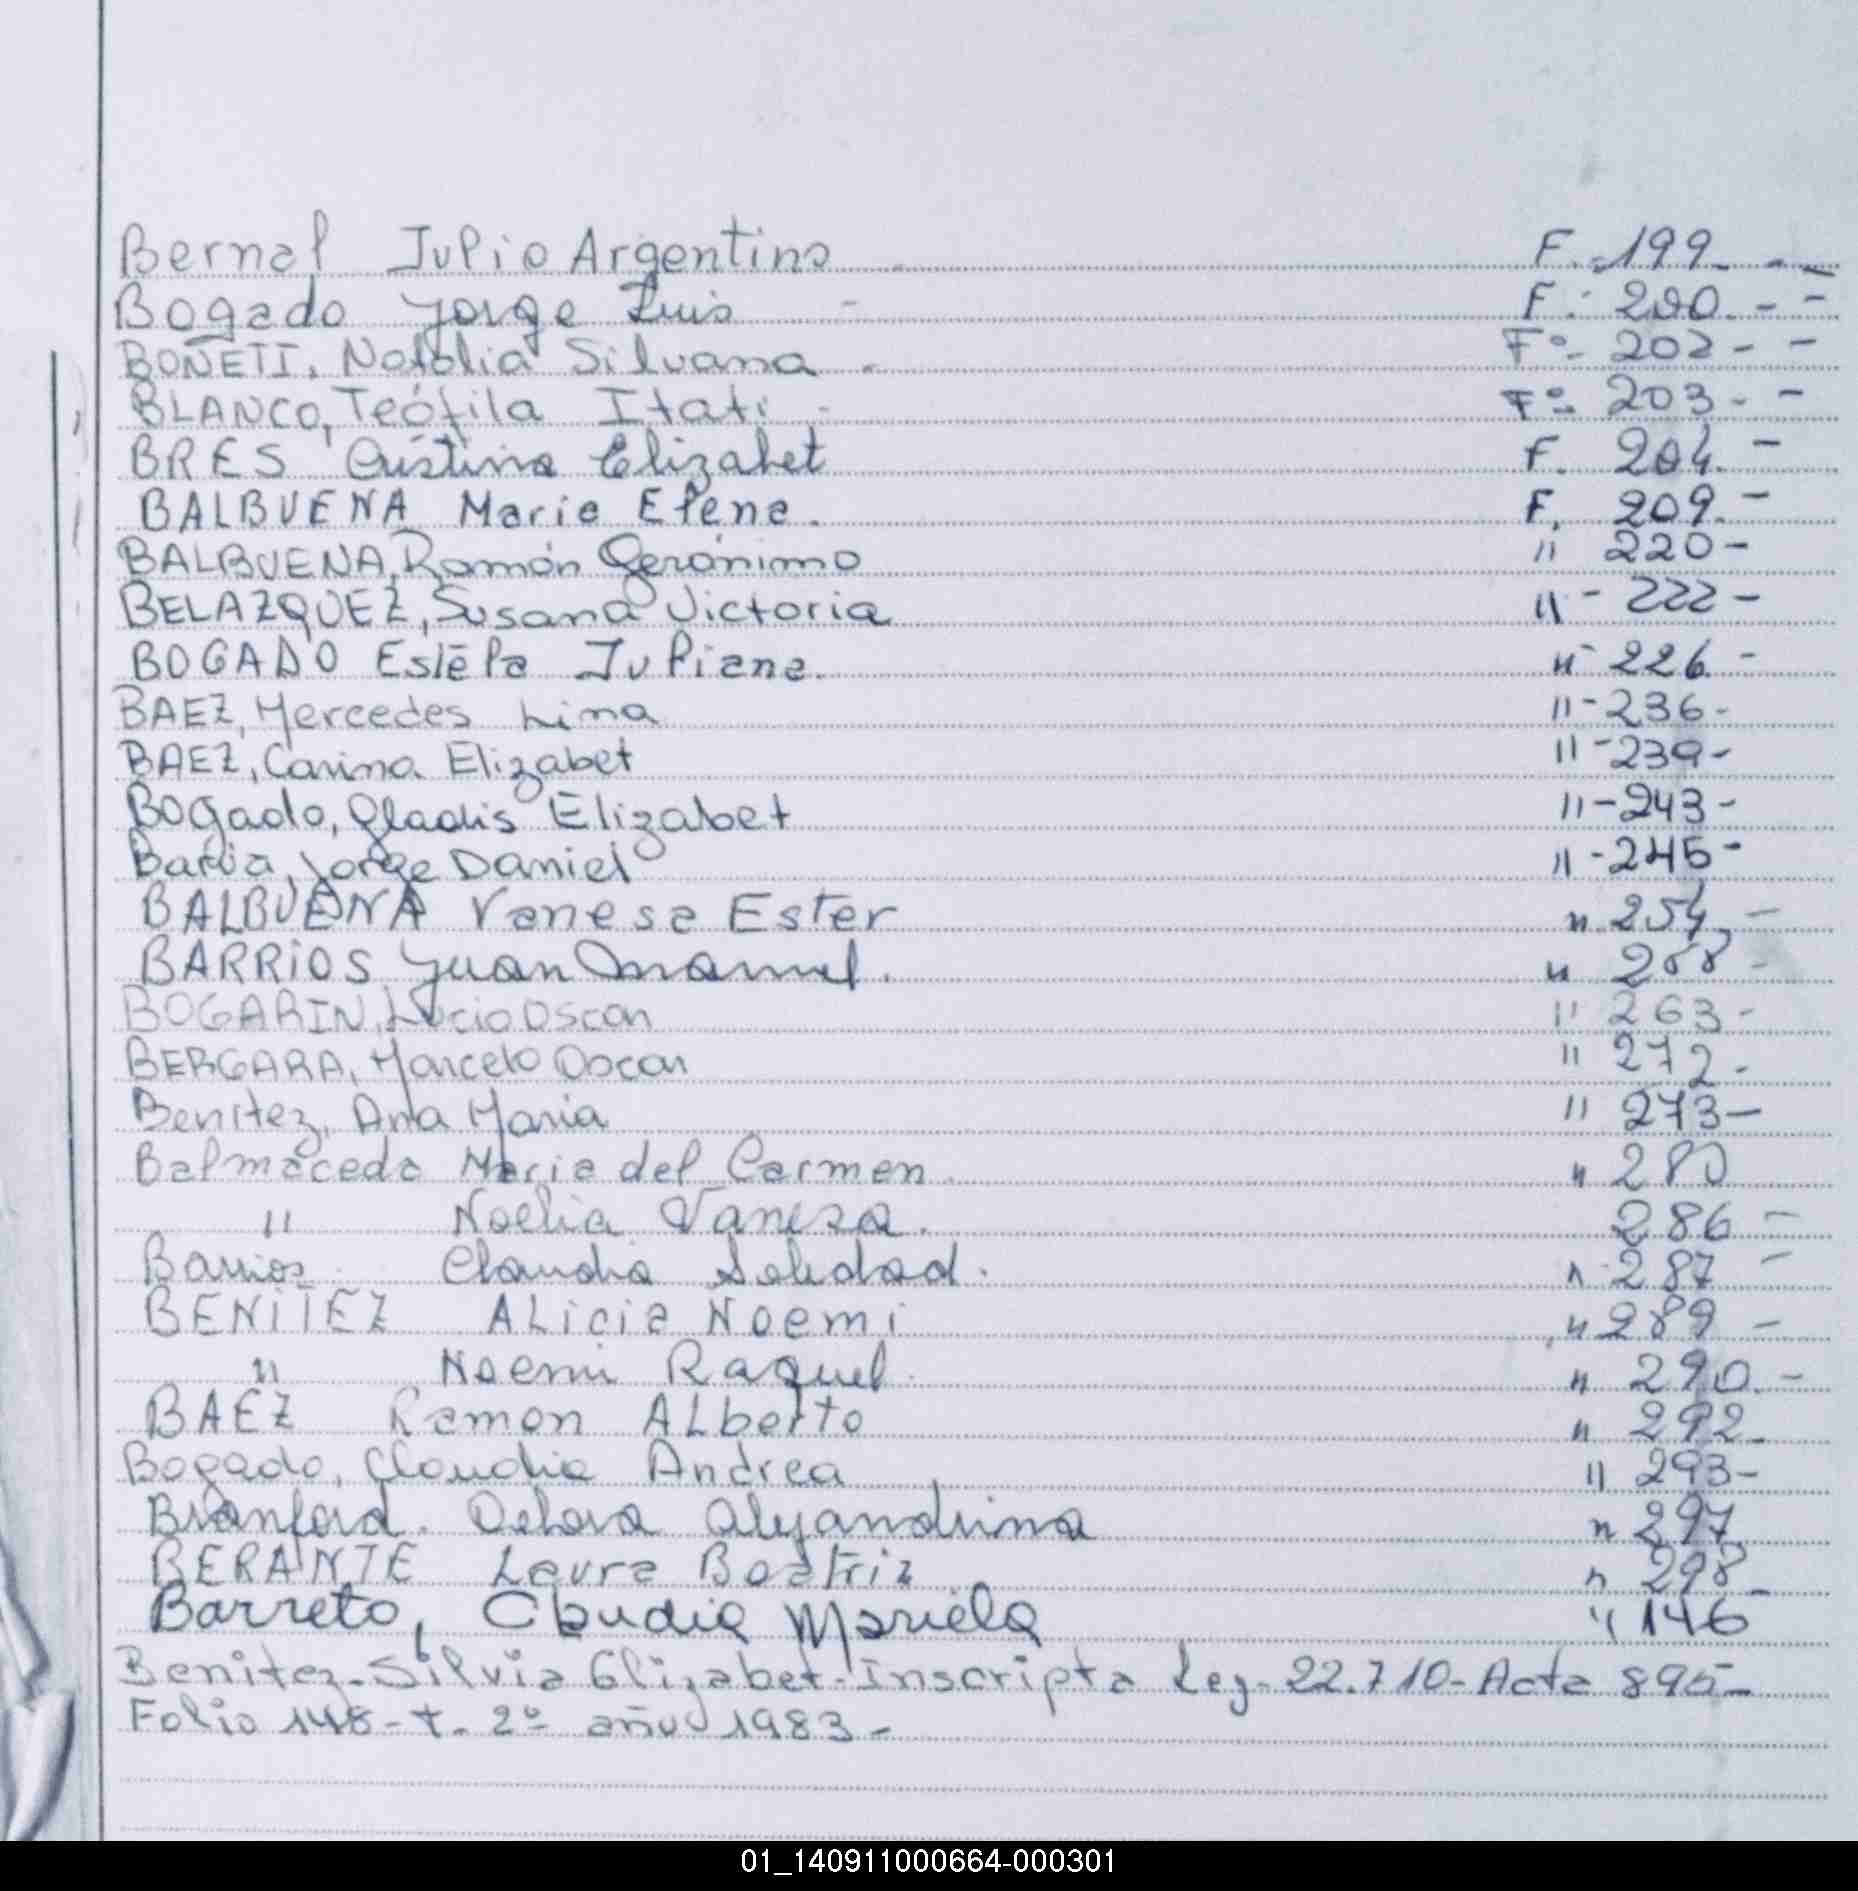 Bernal Julio Argentino F.- 199 - -
Bogado Jorge Luis - F.: 200. - -
BOÑETI, Natalia Silvana - Fº- 202 - -
BLANCO, Teófila Itati - Fº- 203 - -
BRES Cristina Elizabet F. 204. -
BALBUENA Maria Elena. F. 209. -
BALBUENA, Ramón Gerónimo " 220 -
BELAZQUEZ, Susana Victoria " - 222 -
BOGADO Estela Juliana. " - 226 -
BAEZ, Mercedes Lina " - 236 -
BAEZ, Carina Elizabet " - 239 -
Bogado, Gladis Elizabet " - 243 -
Jorge Daniel " - 245 -
BALBUENA Vanesa Ester " 254 -
BARRIOS Juan Manuel. " -
BOGARIN, Lucio Oscar " 263 -
BERGARA, Marcelo Oscar " 272 -
Benitez, Ana Maria " 273 -
Balmaceda Maria del Carmen. " 280
" Noelia Vanesa. 286 -
Barrios Claudia Soledad. " 287 -
BENITEZ ALicia Noemi " 289 -
" Noemi Raquel. " 290. -
BAEZ Ramon ALberto " 292 -
Bogado, Claudia Andrea " 293 -
Branford. Debora Alejandrina " 297
BERANTE Laura Beatriz " 298 -
Barreto, Claudia Mariela " 146
Benitez - Silvia Elizabet - Inscripta Leg - 22.710 - Acta 895 -
Folio 148 - t - 2º año 1983 -
01_140911000664-000301